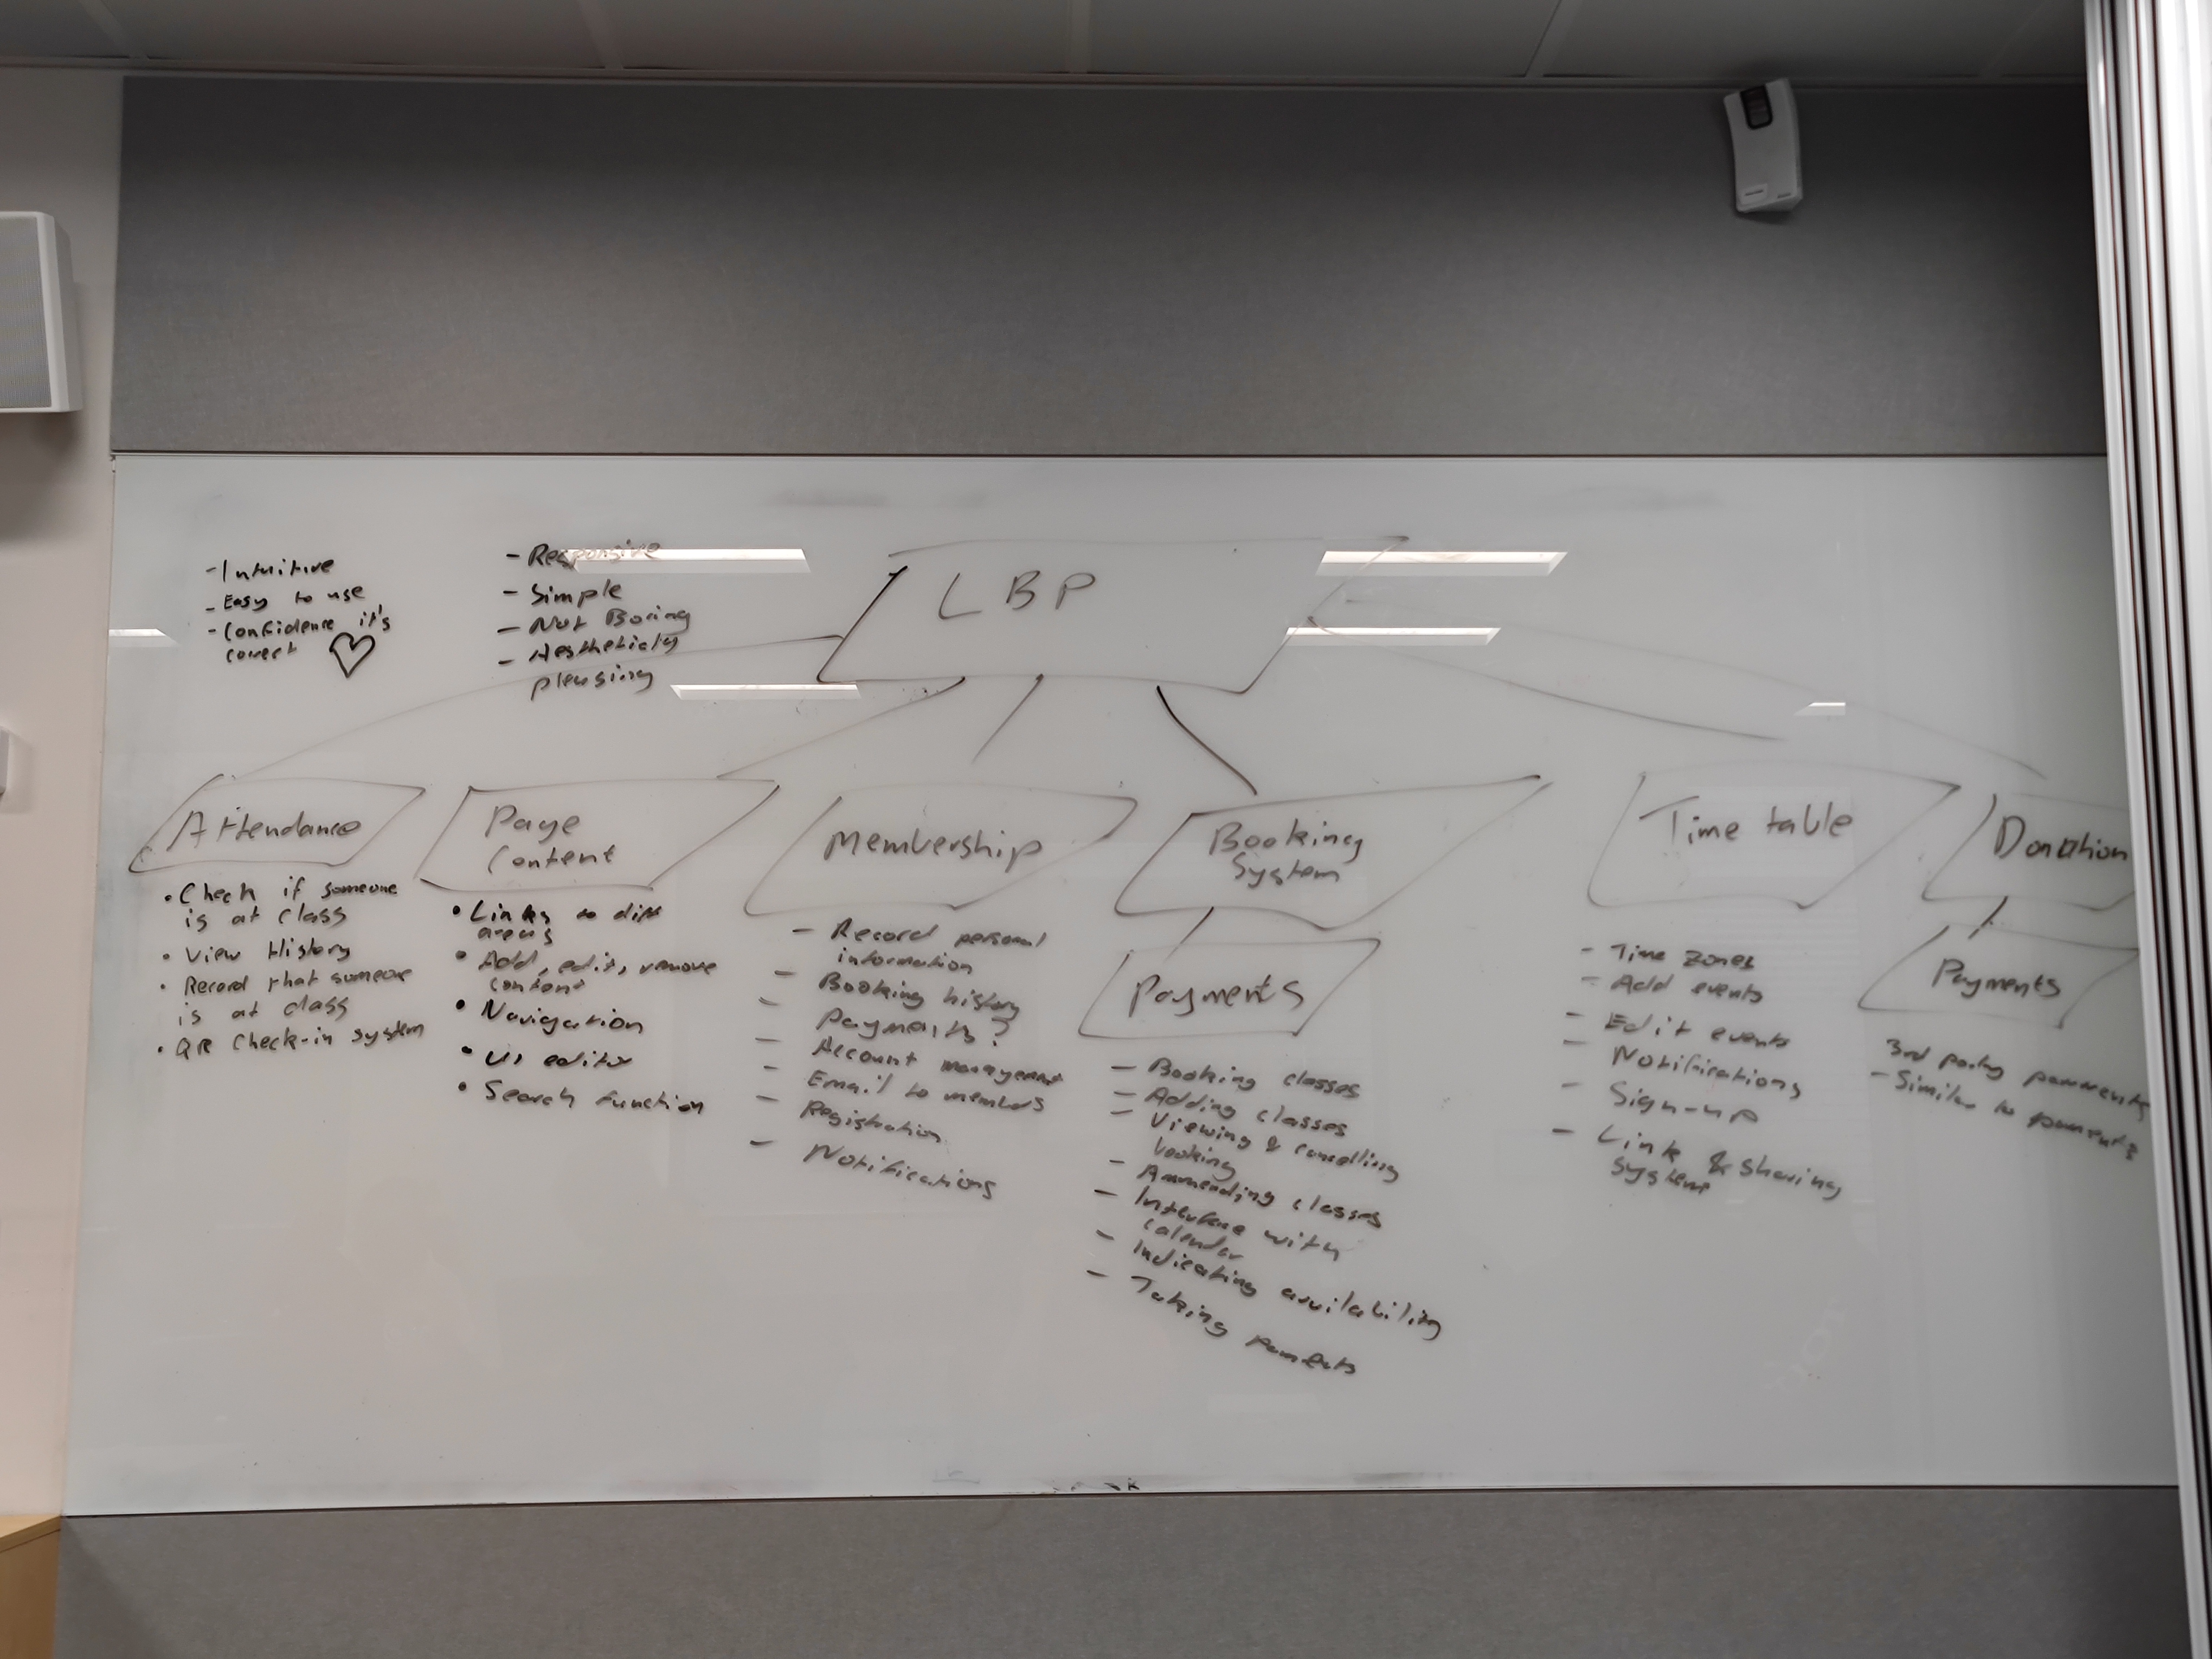 - Intuitive
- Easy to use
- Confidence it's
correct
- Responsive
- Simple
- Not Boring
- Aestheticly
pleasing
LBP
Attendance
• Check if someone
is at class
• View History
• Record that someone
is at class
• QR Check-in system
Page
Content
• Links to diff
areas
• Add, edit, remove
content
• Navigation
• UI editor
• Search function
Membership
- Record personal
information
- Booking history
- Payments?
- Account management
- Email to members
- Registration
- Notifications
Booking
System
Payments
- Booking classes
- Adding classes
- Viewing & cancelling
booking
- Ammending classes
- Interface with
calendar
- Indicating availability
- Taking paments
Time table
- Time zones
- Add events
- Edit events
- Notifications
- Sign-up
- Link & sharing
system
Donation
Payments
3rd party payments
- Similar to paments